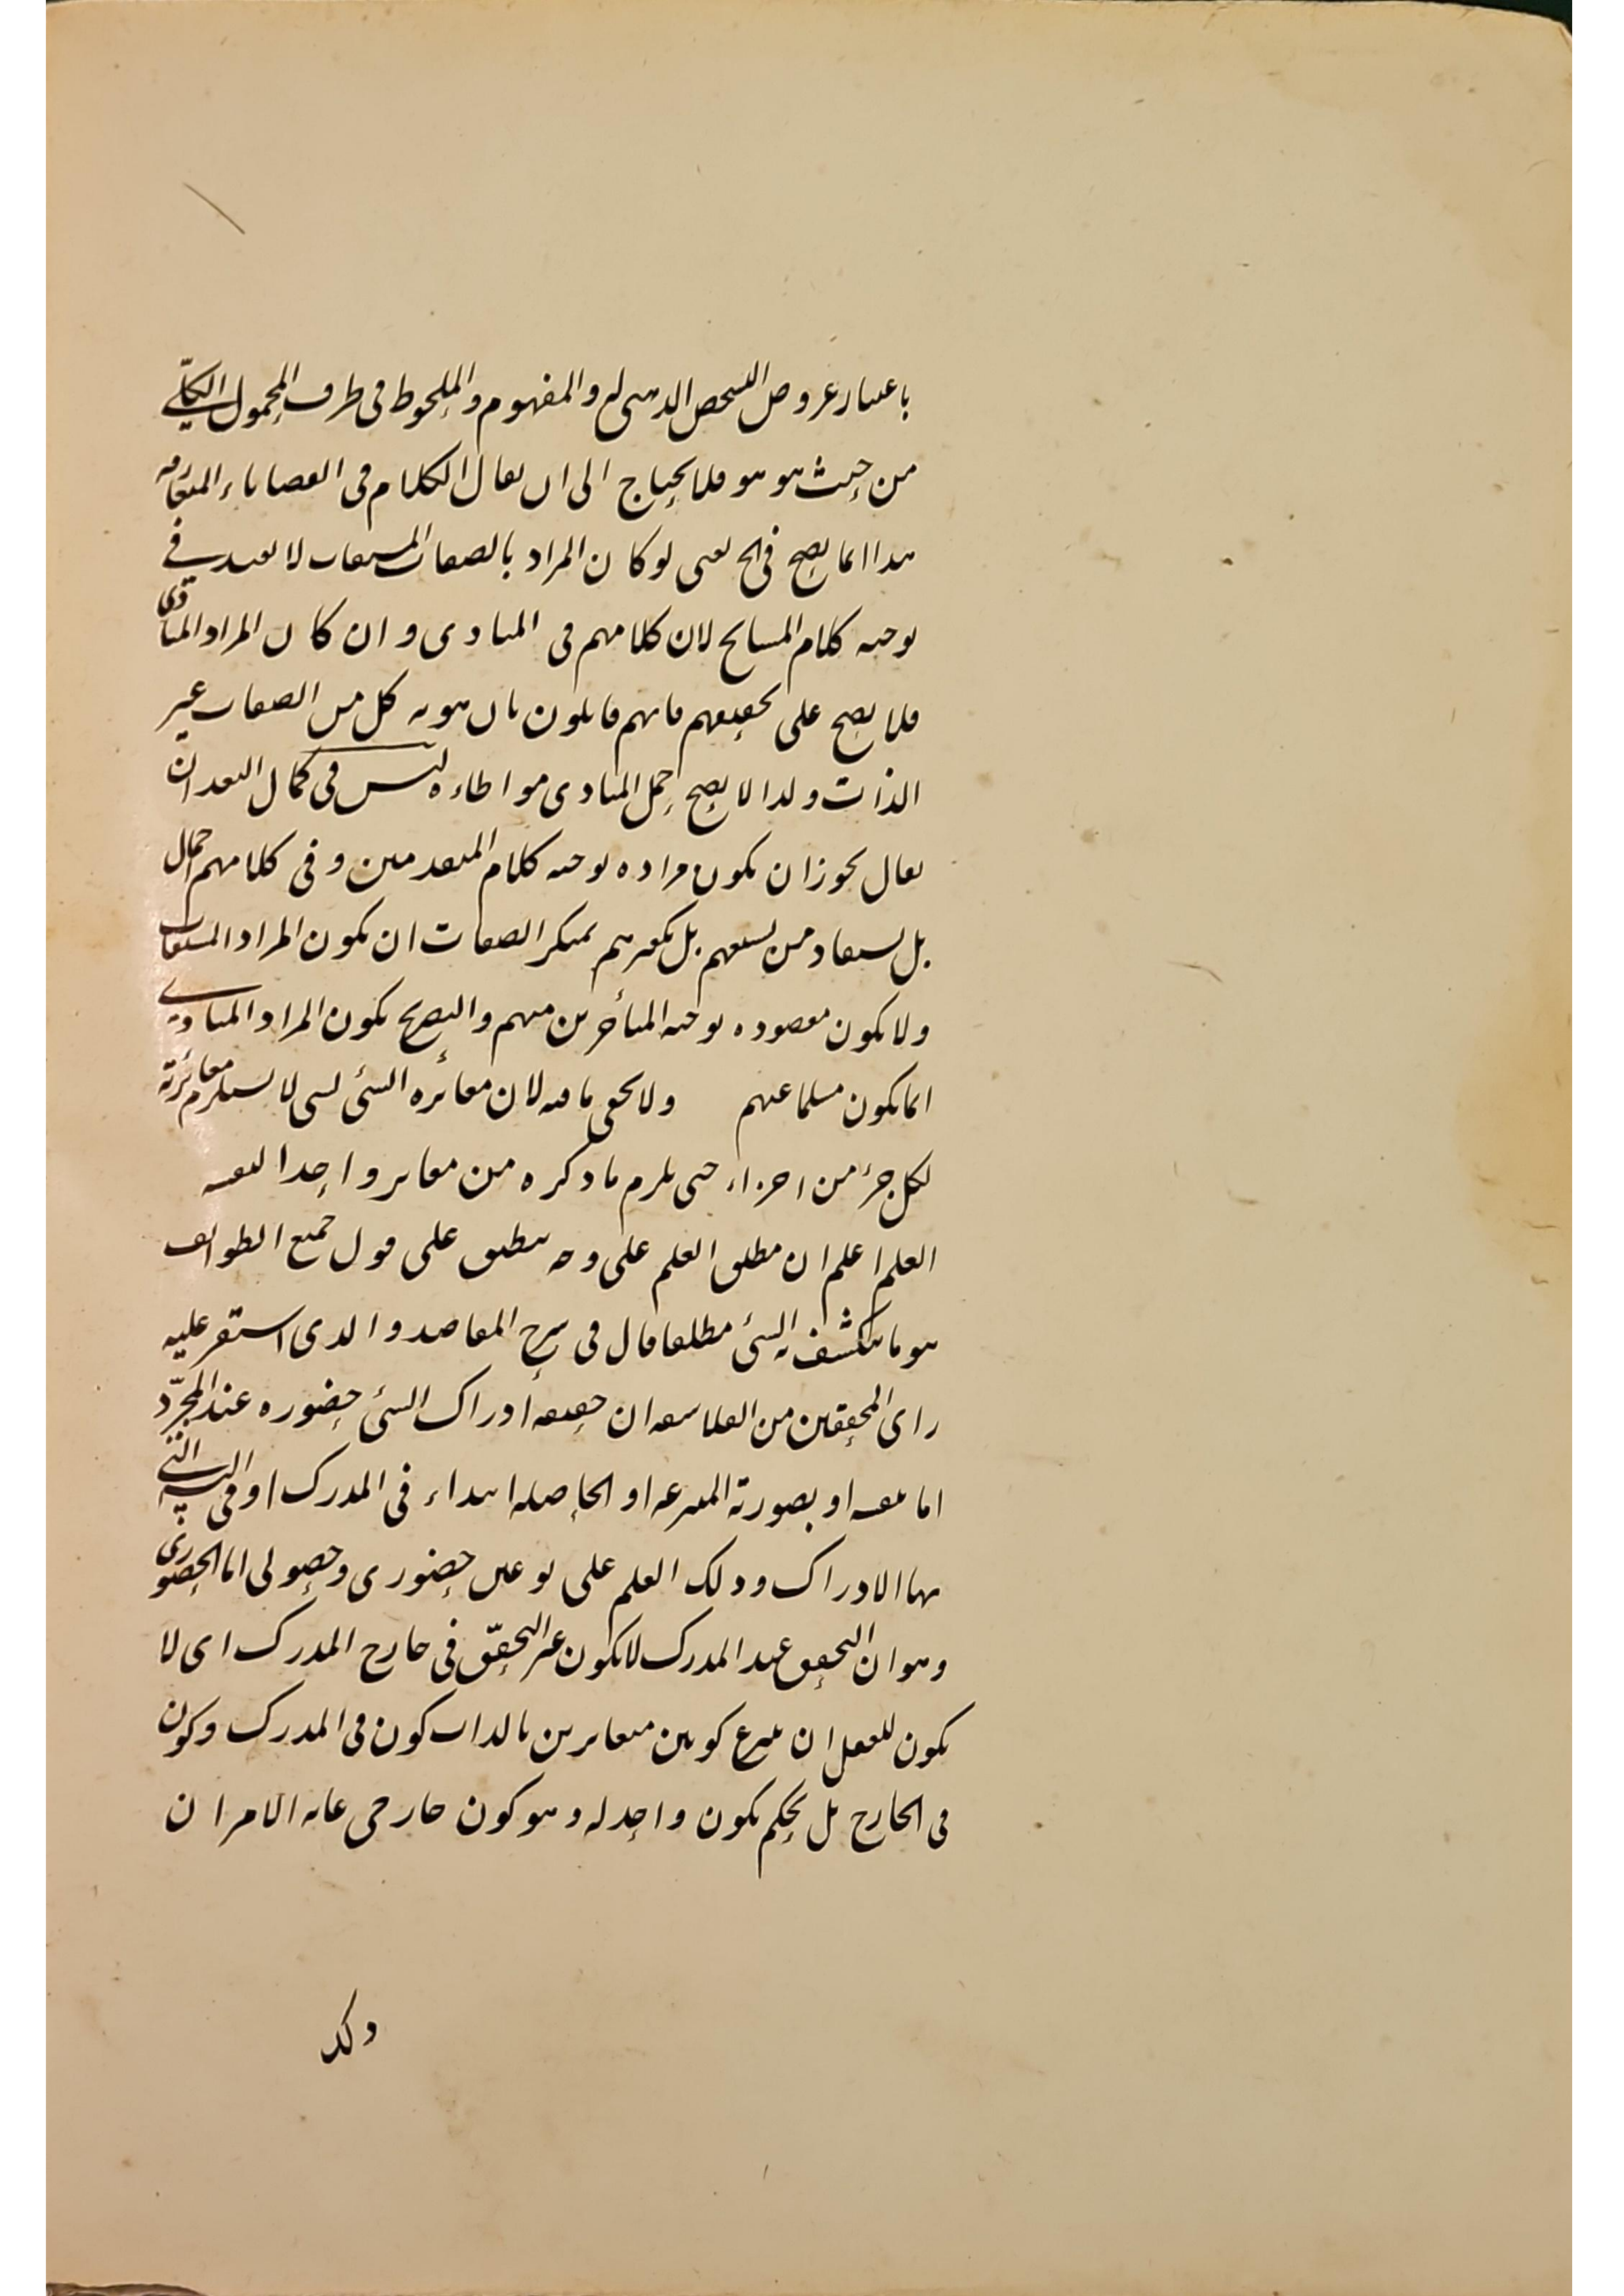 باعتبار عروض التشخص الذهني له والمفهوم والملحوظ في طرف المحمول الكلّي
من حيث هو هو فلا يحتاج الى ان يقال الكلام في القضايا المتعارفه
هذا انما يصح في الخ يعني لو كان المراد بالصفات المشتقات لا يفيد في
توجيه كلام المشايخ لان كلامهم في المبادى وان كان المراد المبادى
فلا يصح على تحقيقهم فانهم قايلون بان هويه كل من الصفات عين
الذات ولذا لا يصح حمل المبادى مواطاءه ليس في كمال البعد ان
يقال يجوز ان يكون مراده توجيه كلام المتقدمين وفي كلامهم اجمال
بل يستفاد من بل تكفيرهم بمنكر الصفات ان يكون المراد المشتقات
ولا يكون مقصوده توجيه المتأخرين منهم والتصريح بكون المراد المبادي
انما يكون مسلما عنهم ولا يخفى ما فيه لان مغائره الشئ لشى لا يستلزم مغائرته
لكل جزء من اجزاء حتى يلزم ما ذكره من مغاير واحدا لنفسه
العلم اعلم ان مطلق العلم على وجه ينطبق على قول جميع الطوائف
هو ما ينكشف به الشئ مطلقا قال في شرح المقاصد والذى استقر عليه
راى المحققين من الفلاسفه ان حقيقه ادراك الشئ حضوره عند المجرّد
اما بنفسه او بصورته المنتزعه او الحاصله ابتداء في المدرك او في اليه التي
بها الادراك وذلك العلم على نوعين حضورى وحصولى اما الحضورى
وهو ان التحقق عند المدرك لا يكون غير التحقّق في خارج المدرك اى لا
يكون للعقل ان ينتزع كونين متغايرين بالذات كون في المدرك وكون
في الخارج بل يحكم بكون واحد له وهو كون خارجى غايه الامر ان